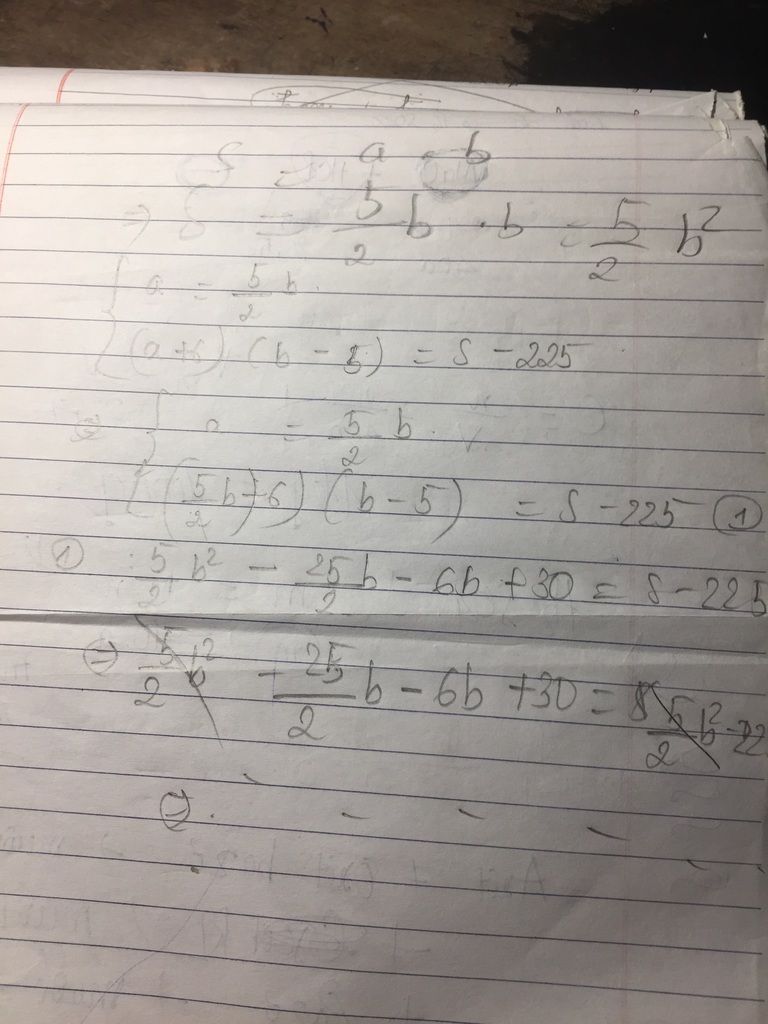 S = a . b
=> S = 5/2 b . b = 5/2 b²
{ a = 5/2 b .
(a+6) (b - 5) = S - 225
<=> { a = 5/2 b .
(5/2 b - 6) (b - 5) = S - 225 ①
① 5/2 b² - 25/2 b - 6b + 30 = S - 225
<=> 5/2 b² - 25/2 b - 6b + 30 = 5/2 b² - 22